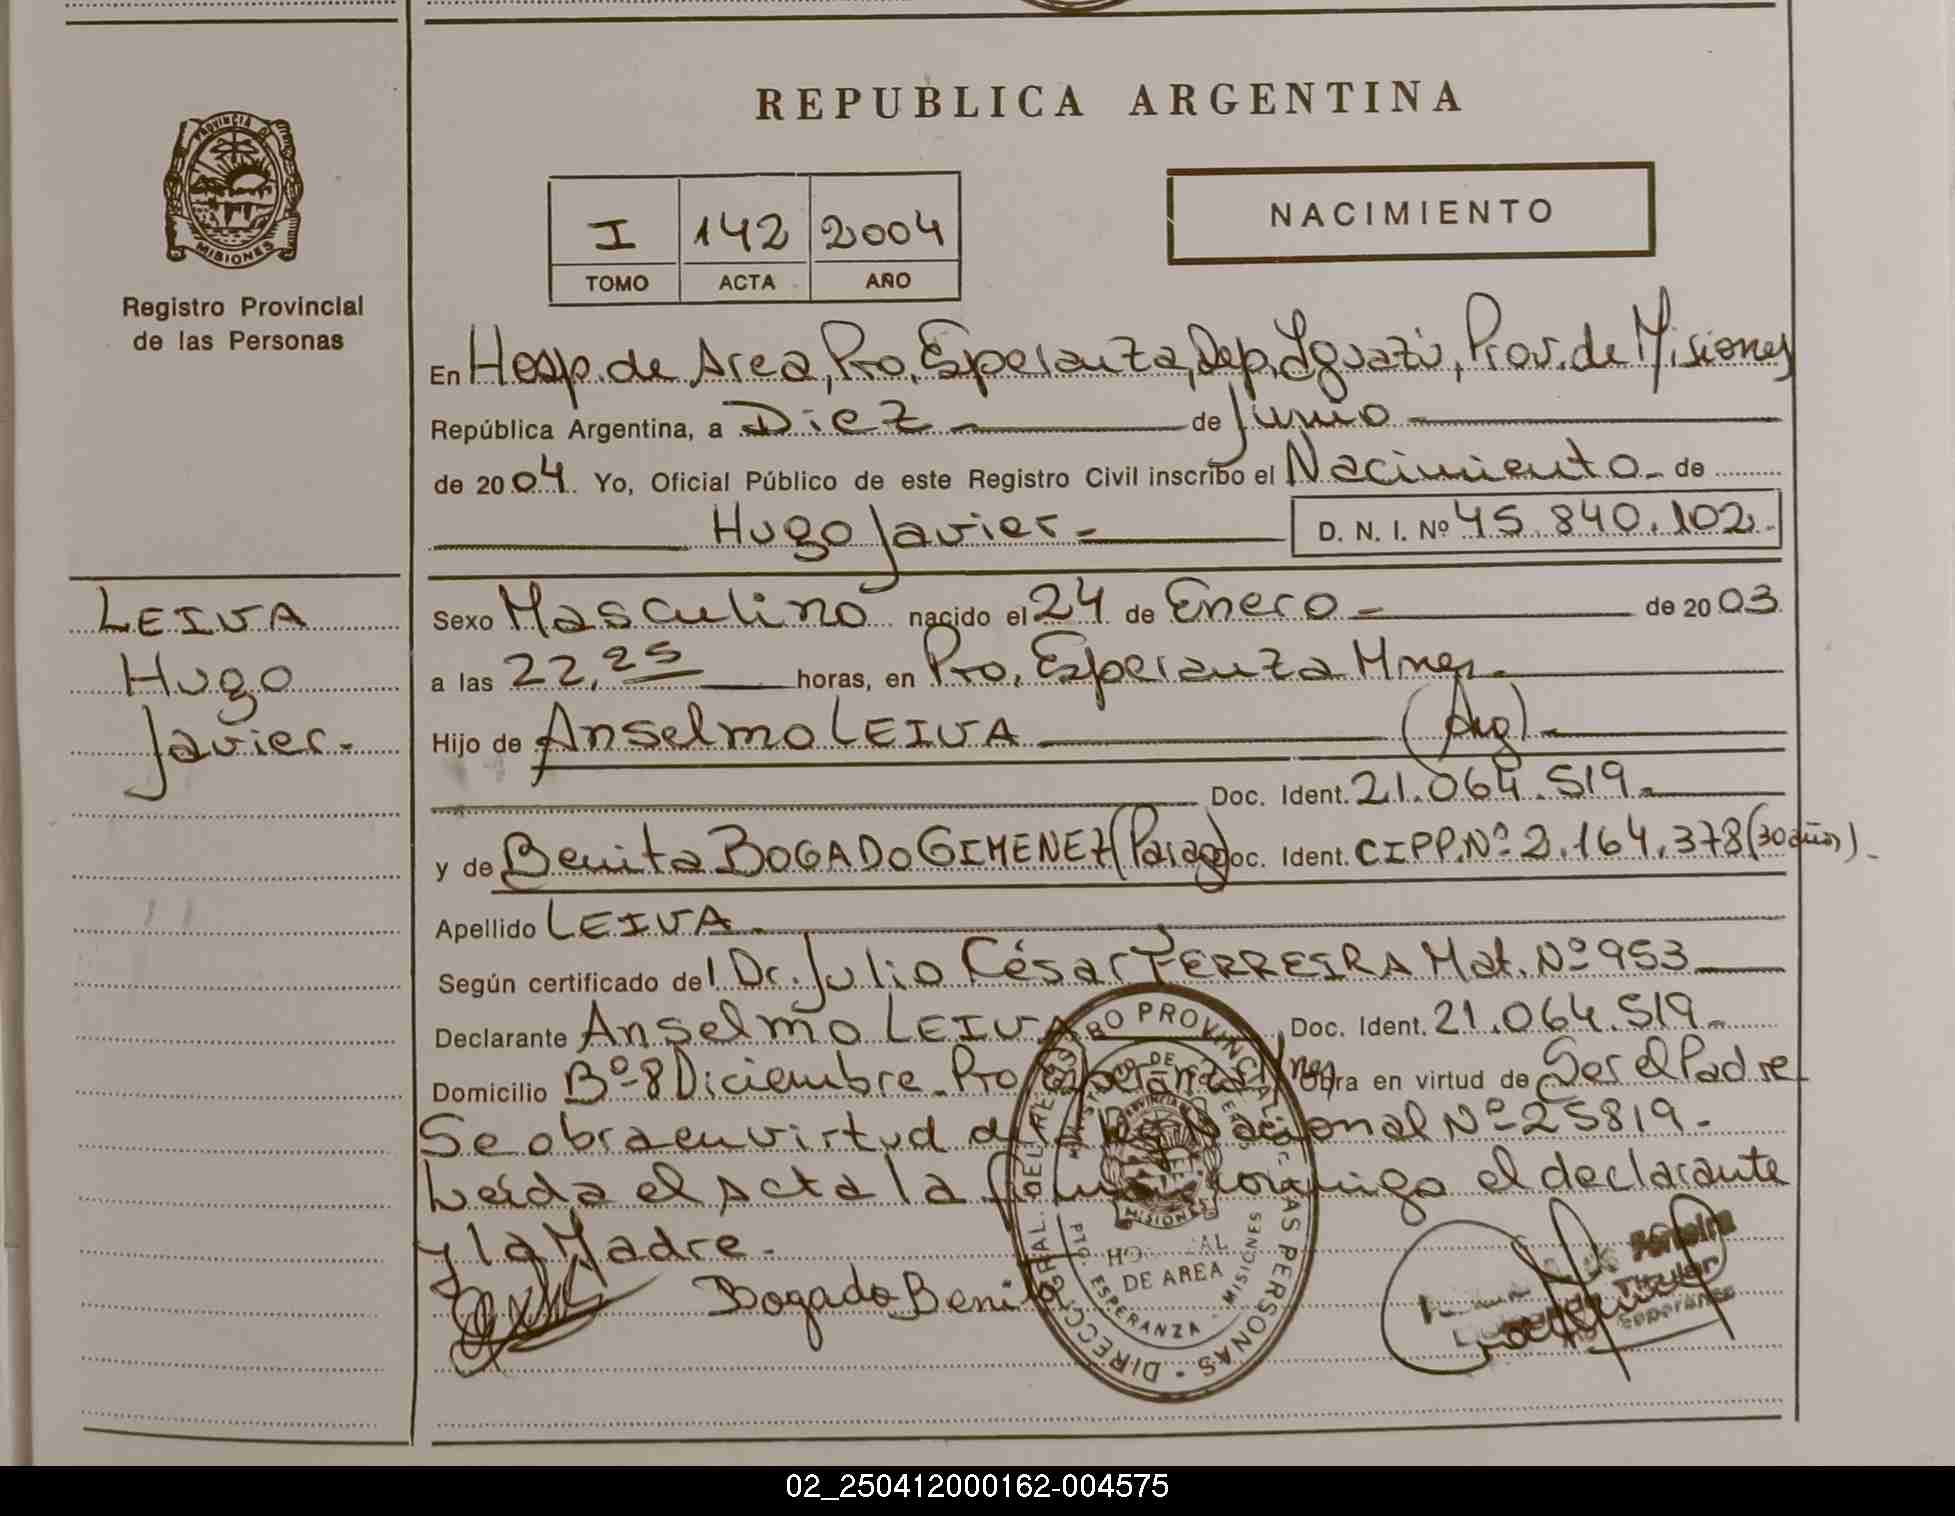 REPUBLICA ARGENTINA
PROVINCIA DE
MISIONES
Registro Provincial
de las Personas
I 142 2004
TOMO ACTA AÑO
NACIMIENTO
En Hosp. de Area, Pto. Esperanza, Dep. Iguazú, Prov. de Misiones
República Argentina, a Diez de Junio
de 2004 Yo, Oficial Público de este Registro Civil inscribo el Nacimiento de
Hugo Javier D. N. I. Nº 45.840.102
LEIVA
Hugo
Javier
Sexo Masculino nacido el 24 de Enero de 2003
a las 22,25 horas, en Pto. Esperanza Mnes.
Hijo de Anselmo LEIVA (Arg)
Doc. Ident. 21.064.519
y de Benita BOGADO GIMENEZ (Parag) Doc. Ident. CIPP.Nº 2.164.378 (30 años)
Apellido LEIVA
Según certificado del Dr. Julio César FERREIRA Mat. Nº 953
Declarante Anselmo LEIVA Doc. Ident. 21.064.519
Domicilio Bº 8 Diciembre Pto Esperanza Mnes Obra en virtud de Ser el Padre
Se obra en virtud de Nacional Nº 25819
Leída el Acta la firman conmigo el declarante
y la Madre.
Bogado Benita
DIRECC. GRAL. DEL REGISTRO PROVINCIAL DE LAS PERSONAS
PROVINCIA
MISIONES
HOSPITAL
DE AREA
PTO. ESPERANZA - MISIONES
Ferreira
Titular
Esperanza
02_250412000162-004575